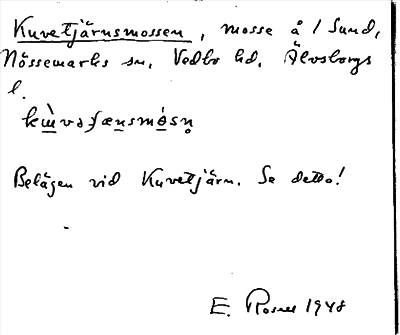 Kuvetjärnsmossen, mosse å 1 Sund,
Nössemarks sn, Vedbo hd, Älvsborgs
l.
Belägen vid Kuvetjärn. Se detta!
E. Rosell 1948